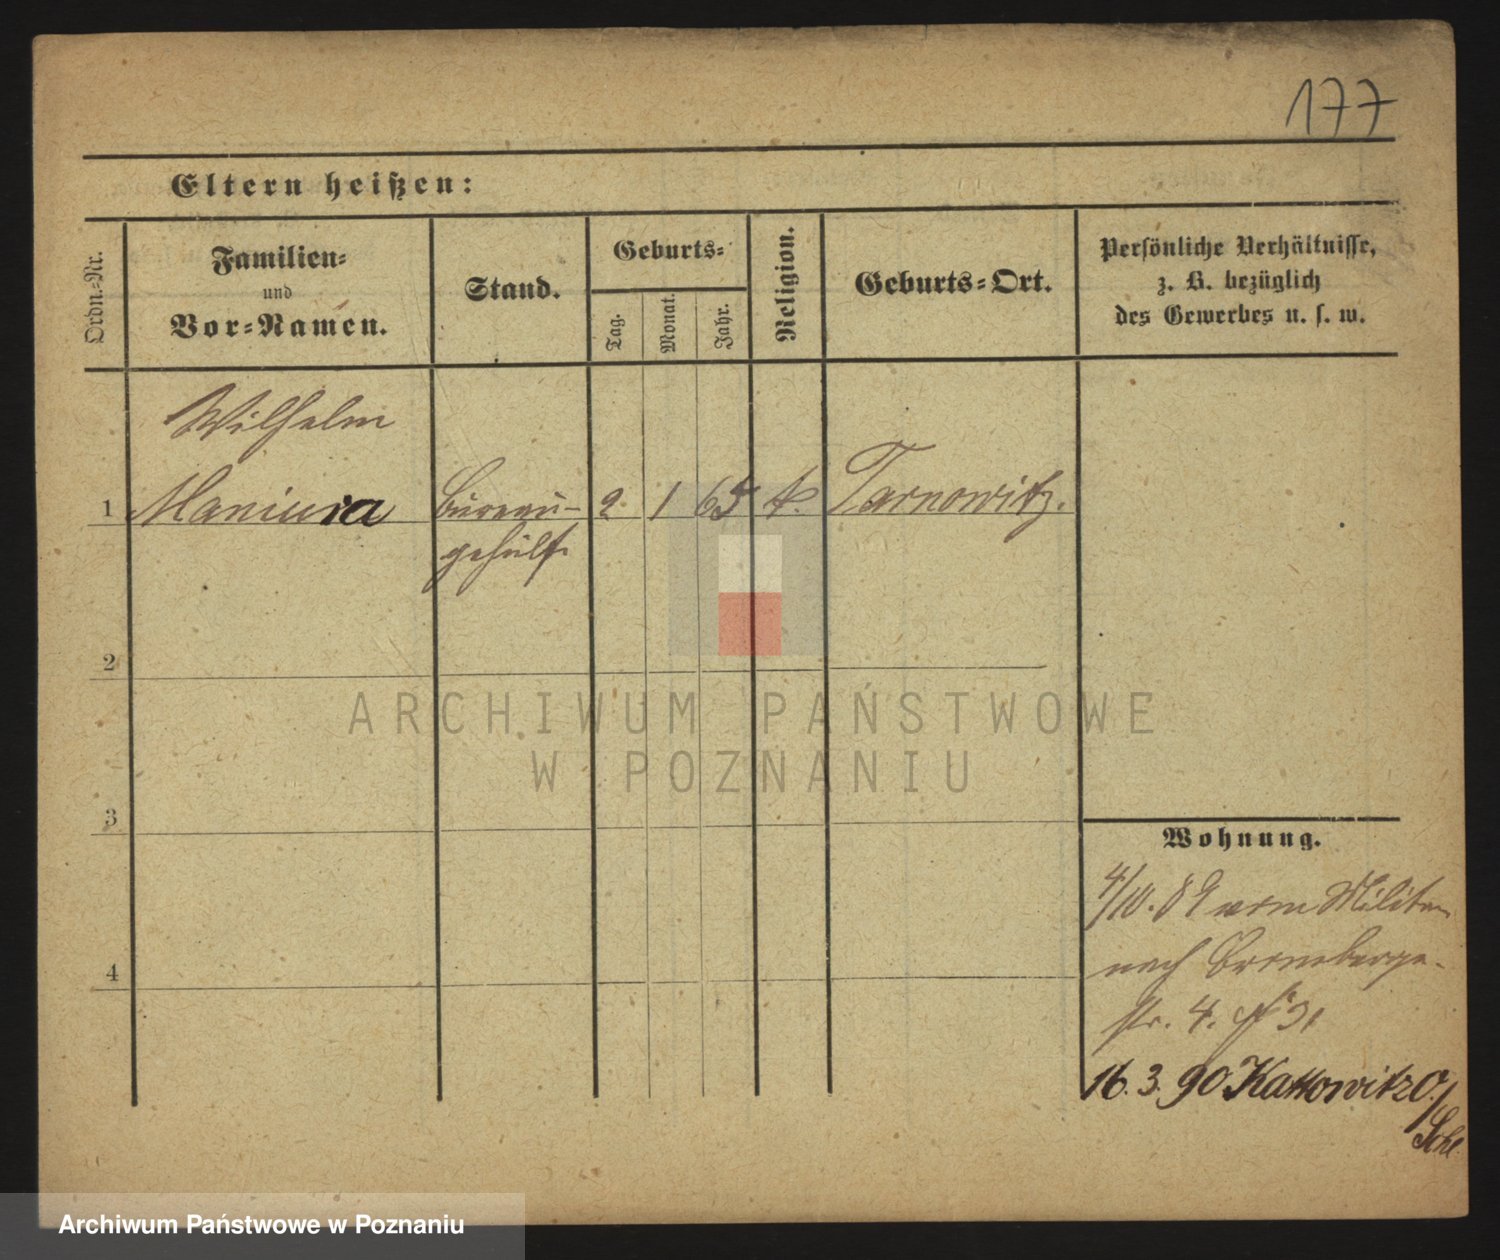 177
Eltern heißen:
Ordn.-Nr.
Familien-
und
Vor-Namen.
Stand.
Geburts-
Tag.
Monat.
Jahr.
Religion.
Geburts-Ort.
Persönliche Verhältnisse,
z. B. bezüglich
des Gewerbes u. s. w.
Wilhelm
1 Maniura Bureau- 2 1 65 k. Tarnowitz.
gehülfe
2
3
4
Wohnung.
4/10. 89 vom Militär
nach Bromberger-
str. 4.
16. 3. 90 Kattowitz O/
Schl.
ARCHIWUM PAŃSTWOWE
W POZNANIU
Archiwum Państwowe w Poznaniu